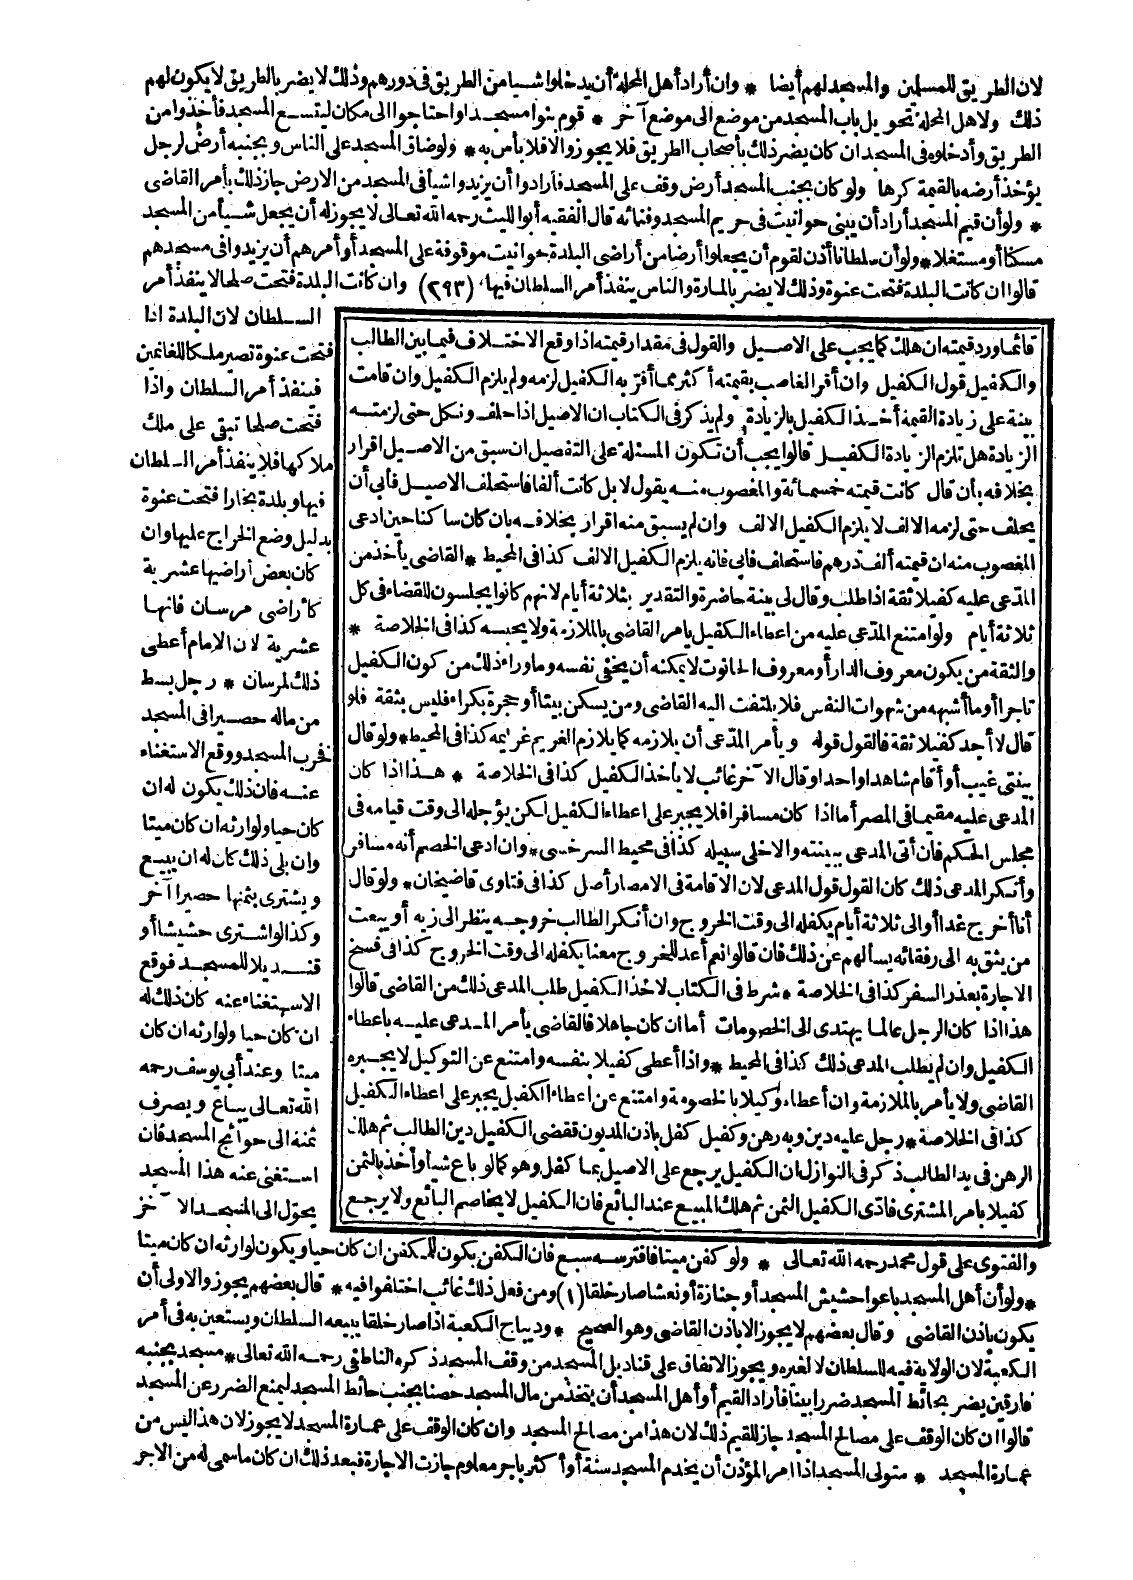 لان الطريق للمسلمين والمسجد لهم أيضا * وان أراد أهل المحلة أن يدخلوا شيا من الطريق في دورهم وذلك لا يضر بالطريق لا يكون لهم
ذلك ولاهل المحلة تحويل باب المسجد من موضع الى موضع آخر * قوم بنوا مسجدا واحتاجوا الى مكان ليتسع المسجد فأخذوا من
الطريق وأدخلوه في المسجد ان كان يضر ذلك بأصحاب الطريق فلا يجوز والا فلا بأس به * ولو ضاق المسجد على الناس وبجنبه أرض لرجل
يؤخذ أرضه بالقيمة كرها ولو كان بجنب المسجد أرض وقف على المسجد فأرادوا أن يزيدوا شيأ في المسجد من الارض جاز ذلك بأمر القاضى
* ولو أن قيم المسجد أراد أن يبنى حوانيت في حريم المسجد وفنائه قال الفقيه أبو الليث رحمه الله تعالى لا يجوز له أن يجعل شيأ من المسجد
مسكنا أو مستغلا * ولو أن سلطانا أذن لقوم أن يجعلوا أرضا من أراضى البلدة حوانيت موقوفة على المسجد أو أمرهم أن يزيدوا في مسجدهم
قالوا ان كانت البلدة فتحت عنوة وذلك لا يضر بالمارة والناس ينفذ أمر السلطان فيها (٢٩٣) وان كانت البلدة فتحت صلحا لا ينفذ أمر
السلطان لان البلدة اذا
فتحت عنوة تصير ملكا للغانمين
فينفذ أمر السلطان واذا
فتحت صلحا تبقى على ملك
ملاكها فلا ينفذ أمر السلطان
فيها وبلدة بخارا فتحت عنوة
بدليل وضع الخراج عليها وان
كان بعض أراضيها عشرية
كأراضى مرسان فانها
عشرية لان الامام أعطى
ذلك لمرسان * رجل بسط
من ماله حصيرا في المسجد
فخرب المسجد ووقع الاستغناء
عنه فان ذلك يكون له ان
كان حيا ولوارثه ان كان ميتا
وان بلى ذلك كان له ان يبيع
ويشترى بثمنها حصيرا آخر
وكذا لو اشترى حشيشا أو
قنديلا للمسجد فوقع
الاستغناء عنه كان ذلك له
ان كان حيا ولوارثه ان كان
ميتا وعند أبى يوسف رحمه
الله تعالى يباع ويصرف
ثمنه الى حوائج المسجد فان
استغنى عنه هذا المسجد
يحوّل الى المسجد الآخر
قائما ورد قيمته ان هلك كما يجب على الاصيل والقول في مقدار قيمته اذا وقع الاختلاف فيما بين الطالب
والكفيل قول الكفيل وان أقر الغاصب بقيمته أكثر مما أقرّ به الكفيل لزمه ولم يلزم الكفيل وان قامت
بينة على زيادة القيمة أخذ الكفيل بالزيادة ولم يذكر في الكتاب ان الاصيل اذا حلف ونكل حتى لزمته
الزيادة هل تلزم الزيادة الكفيل قالوا يجب أن تكون المسئلة على التفصيل ان سبق من الاصيل اقرار
بخلافه بأن قال كانت قيمته خمسمائة والمغصوب منه يقول لا بل كانت ألفا فاستحلف الاصيل فأبى أن
يحلف حتى لزمه الالف لا يلزم الكفيل الالف وان لم يسبق منه اقرار بخلافه بان كان ساكتا حين ادعى
المغصوب منه ان قيمته ألف درهم فاستحلف فابى فانه يلزم الكفيل الالف كذا في المحيط * القاضى يأخذ من
المدّعى عليه كفيلا ثقة اذا طلب وقال لى بينة حاضرة والتقدير بثلاثة أيام لانهم كانوا يجلسون للقضاء في كل
ثلاثة أيام ولو امتنع المدّعى عليه من اعطاء الكفيل يامر القاضى بالملازمة ولا يحبسه كذا في الخلاصة *
والثقة من يكون معروف الدار أو معروف الحانوت لا يمكنه أن يخفى نفسه وما وراء ذلك من كون الكفيل
تاجرا أو ما أشبهه من شهوات النفس فلا يلتفت اليه القاضى ومن يسكن بيتا أو حجرة بكراء فليس بثقة فلو
قال لا أجد كفيلا ثقة فالقول قوله ويأمر المدّعى أن يلازمه كما يلازم الغريم غريمه كذا في المحيط * ولو قال
بينتى غيب أو أقام شاهدا واحدا وقال الآخر غائب لا يأخذ الكفيل كذا في الخلاصة * هذا اذا كان
المدعى عليه مقيما في المصر أما اذا كان مسافرا فلا يجبر على اعطاء الكفيل لكن يؤجله الى وقت قيامه في
مجلس الحكم فان أتى المدعى ببينته والا خلى سبيله كذا في محيط السرخسى * وان ادعى الخصم أنه مسافر
وأنكر المدعى ذلك كان القول قول المدعى لان الاقامة في الامصار أصل كذا في فتاوى قاضيخان * ولو قال
أنا أخرج غدا أو الى ثلاثة أيام يكفله الى وقت الخروج وان أنكر الطالب خروجه ينظر الى زيه أو يبعث
من يثق به الى رفقائه يسألهم عن ذلك فان قالوا نعم أعد للخروج معنا يكفله الى وقت الخروج كذا في فسخ
الاجارة بعذر السفر كذا في الخلاصة * شرط في الكتاب لاخذ الكفيل طلب المدعى ذلك من القاضى قالوا
هذا اذا كان الرجل عالما يهتدى الى الخصومات أما ان كان جاهلا فالقاضى يأمر المدعى عليه باعطاء
الكفيل وان لم يطلب المدعى ذلك كذا في المحيط * واذا أعطى كفيلا بنفسه وامتنع عن التوكيل لا يجبره
القاضى ولا يأمر بالملازمة وان أعطاء وكيلا بالخصومة وامتنع عن اعطاء الكفيل يجبر على اعطاء الكفيل
كذا في الخلاصة * رجل عليه دين وبه رهن وكفيل كفل باذن المديون فقضى الكفيل دين الطالب ثم هلك
الرهن في يد الطالب ذكر في النوازل ان الكفيل يرجع على الاصيل بما كفل وهو كما لو باع شيأ وأخذ بالثمن
كفيلا بامر المشترى فادّى الكفيل الثمن ثم هلك المبيع عند البائع فان الكفيل لا يخاصم البائع ولا يرجع
والفتوى على قول محمد رحمه الله تعالى * ولو كفن ميتا فافترسه سبع فان الكفن يكون للمكفن ان كان حيا ويكون لوارثه ان كان ميتا
* ولو أن أهل المسجد باعوا حشيش المسجد أو جنازة أو نعشا صار خلقا (١) ومن فعل ذلك غائب اختلفوا فيه * قال بعضهم يجوز والاولى أن
يكون باذن القاضى وقال بعضهم لا يجوز الا باذن القاضى وهو الصحيح * وديباج الكعبة اذا صار خلقا يبيعه السلطان ويستعين به في أمر
الكعبة لان الولاية فيه للسلطان لا لغيره ويجوز الانفاق على قناديل المسجد من وقف المسجد ذكره الناطفى رحمه الله تعالى * مسجد بجنبه
فارقين يضر بحائط المسجد ضررا بينا فأراد القيم أو أهل المسجد أن يتخذ من مال المسجد حصنا بجنب حائط المسجد ليمنع الضرر عن المسجد
قالوا ان كان الوقف على مصالح المسجد جاز للقيم ذلك لان هذا من مصالح المسجد وان كان الوقف على عمارة المسجد لا يجوز لان هذا ليس من
عمارة المسجد * متولى المسجد اذا امر المؤذن أن يخدم المسجد سنة أو أكثر باجر معلوم جازت الاجارة فبعد ذلك ان كان ما سمى له من الاجر